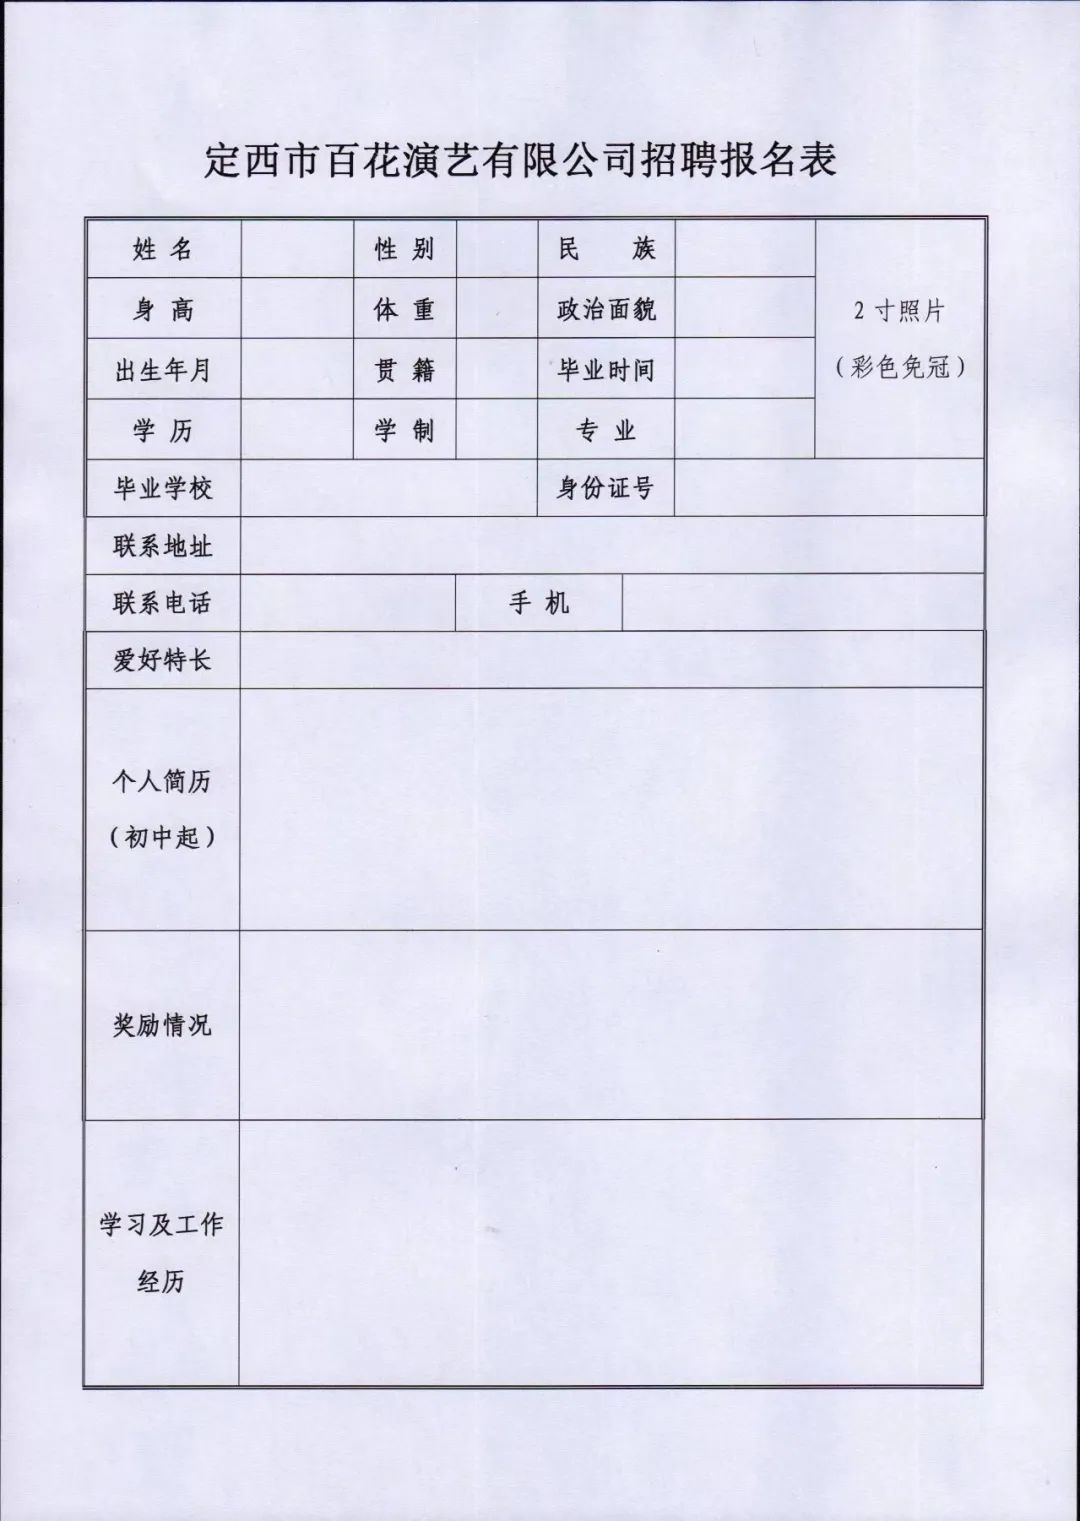 定西市百花演艺有限公司招聘报名表
姓 名 性 别 民 族
身 高 体 重 政治面貌 2 寸照片
出生年月 贯 籍 毕业时间 （彩色免冠）
学 历 学 制 专 业
毕业学校 身份证号
联系地址
联系电话 手 机
爱好特长
个人简历
（初中起）
奖励情况
学习及工作
经历